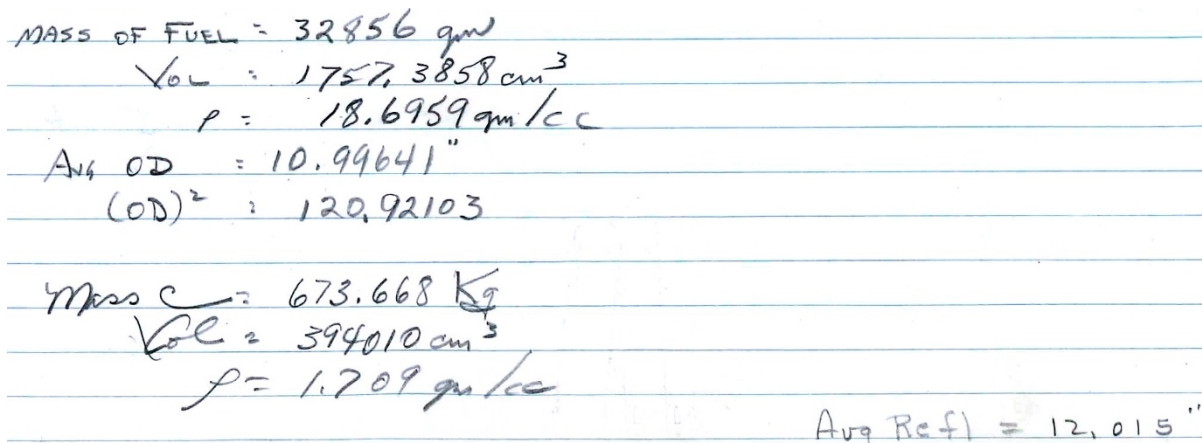 MASS OF FUEL = 32856 gm
VOL = 1757.3858 cm³
ρ = 18.6959 gm/cc
AVG OD = 10.99641"
(OD)² = 120.92103
Mass C = 673.668 Kg
Vol = 394010 cm³
ρ = 1.709 gm/cc
Avg Refl = 12.015"